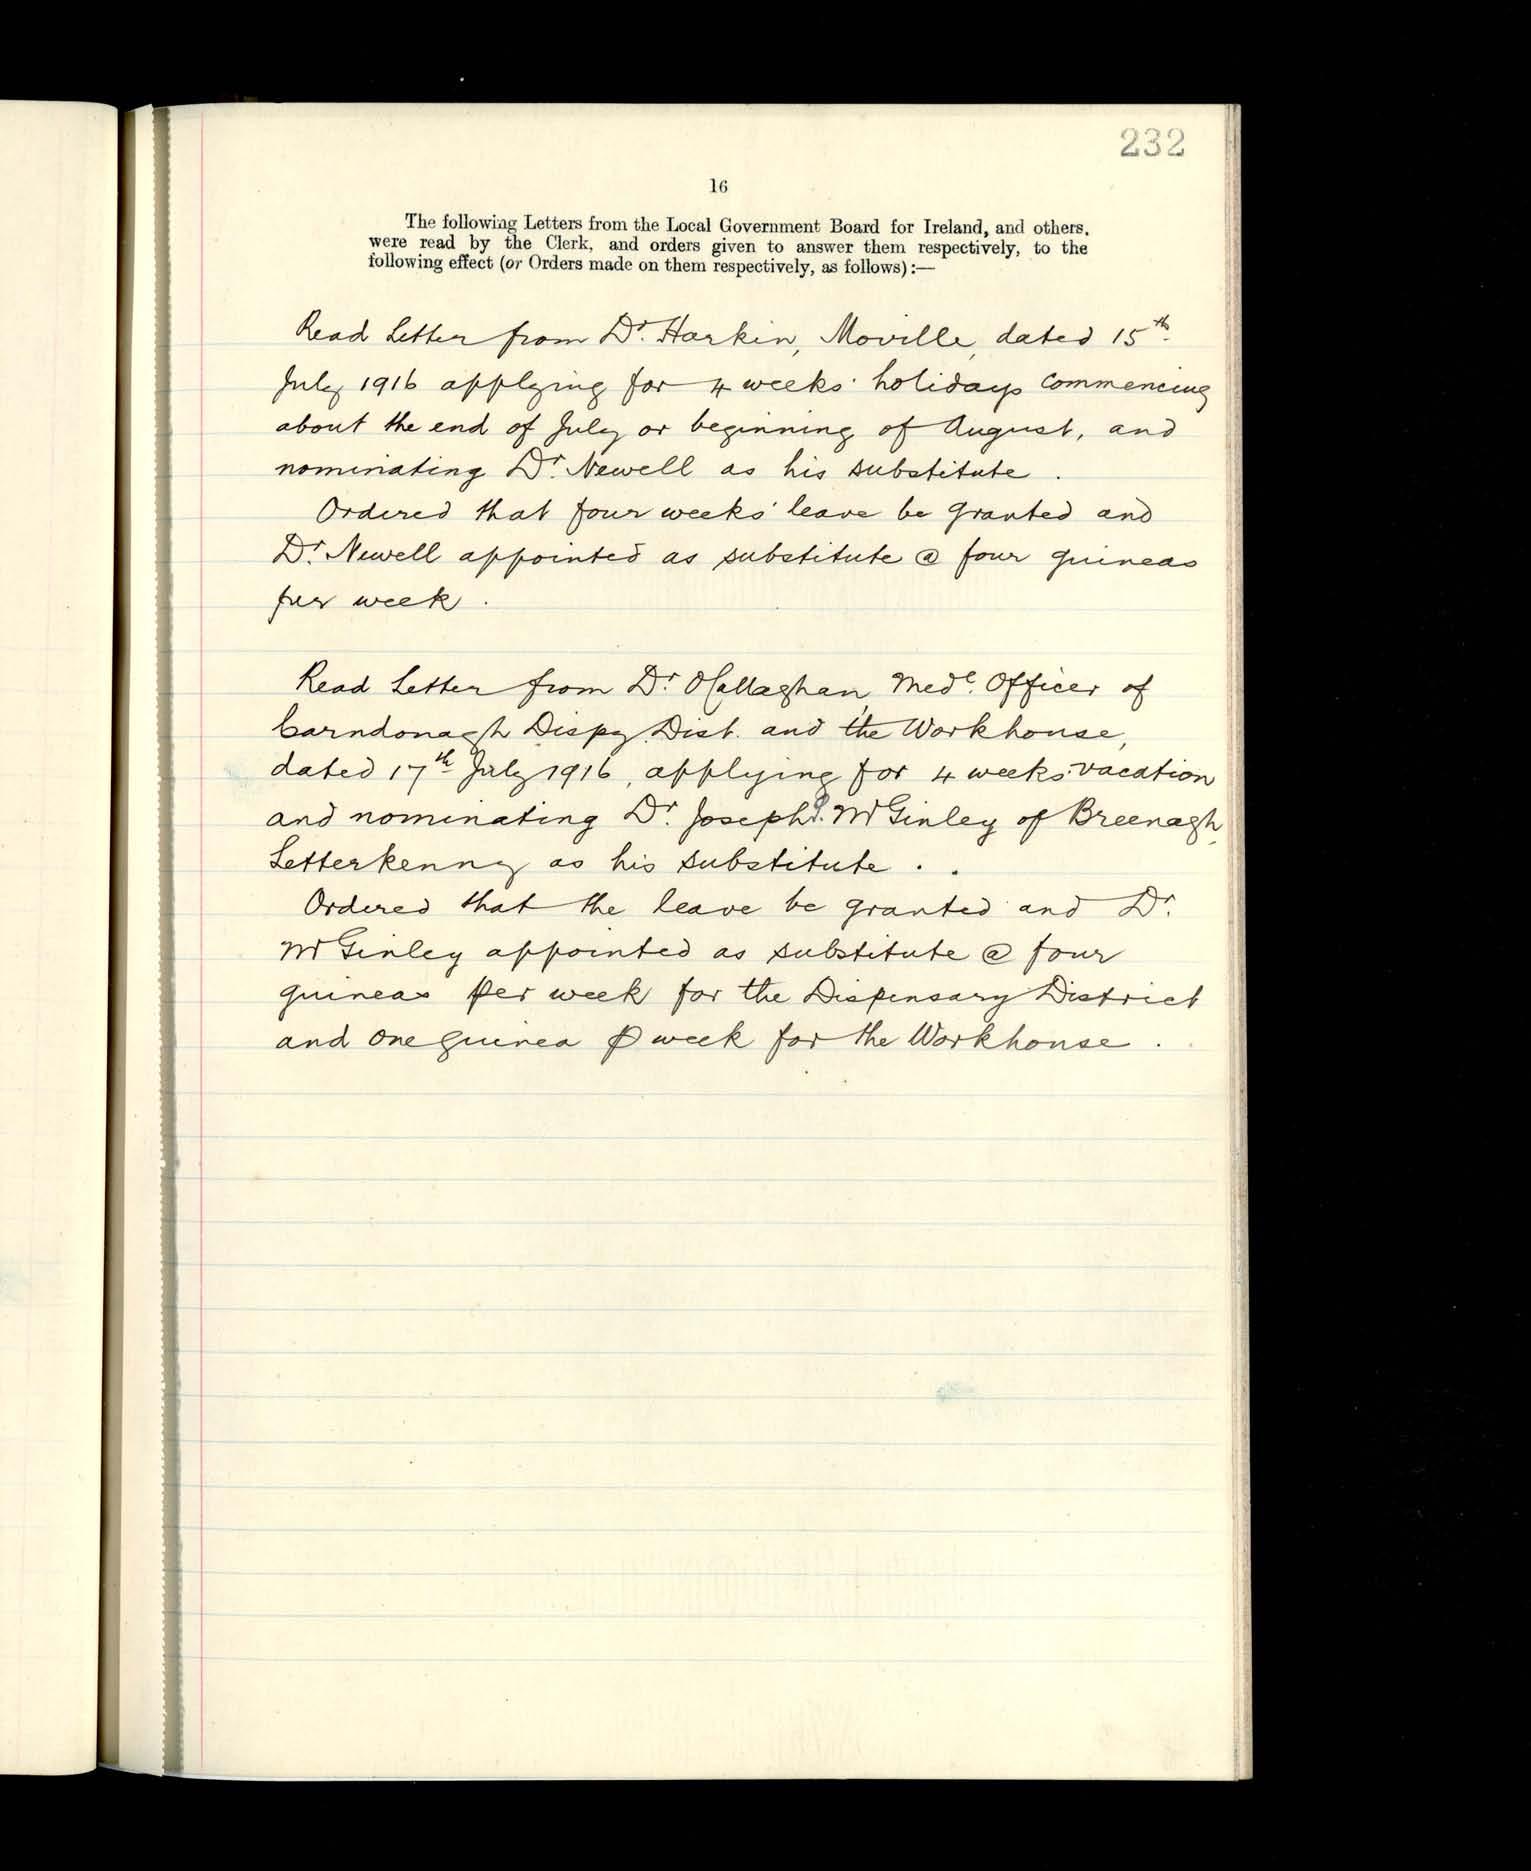 232
16
The following Letters from the Local Government Board for Ireland, and others,
were read by the Clerk, and orders given to answer them respectively, to the
following effect (or Orders made on them respectively, as follows) :—
Read Letter from Dr. Harkin, Moville, dated 15th
July 1916 applying for 4 weeks' holidays commencing
about the end of July or beginning of August, and
nominating Dr. Newell as his substitute.
Ordered that four weeks' leave be granted and
Dr. Newell appointed as substitute @ four guineas
per week.
Read Letter from Dr. O'Callaghan, Medl. Officer of
Carndonagh Dispy. Dist. and the Workhouse,
dated 17th July 1916, applying for 4 weeks' vacation
and nominating Dr. Joseph P. McGinley of Breenagh,
Letterkenny as his substitute..
Ordered that the leave be granted and Dr.
McGinley appointed as substitute @ four
guineas per week for the Dispensary District
and one guinea ⅌ week for the Workhouse.